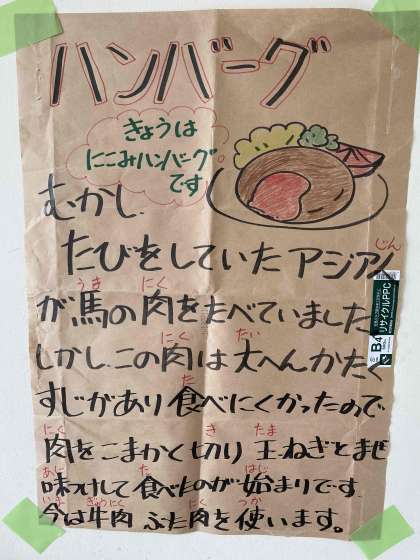 ハンバーグ
きょうは
にこみハンバーグ
です
むかし、
たびをしていたアジア人
じん
が馬の肉をたべていました
うま にく
しかし、この肉は大へんかたく
にく たい
すじがあり食べにくかったので
た
肉をこまかく切り玉ねぎとまぜ
にく き たま
味つけして食べたのが始まりです。
あじ た はじ
今は牛肉ぶた肉を使います。
いま ぎゅうにく にく つか
リサイクルPPC
B4